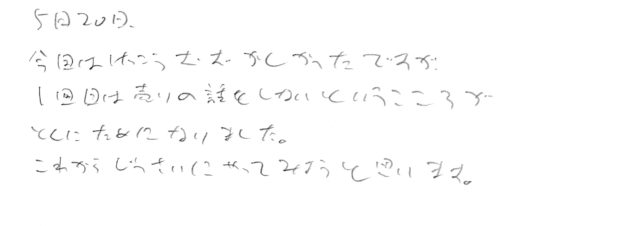 5月20日、
今回はけっこうむずかしかったですが
1回目は売りの話をしないというところが
とくにためになりました。
これからじっさいにやってみようと思います。